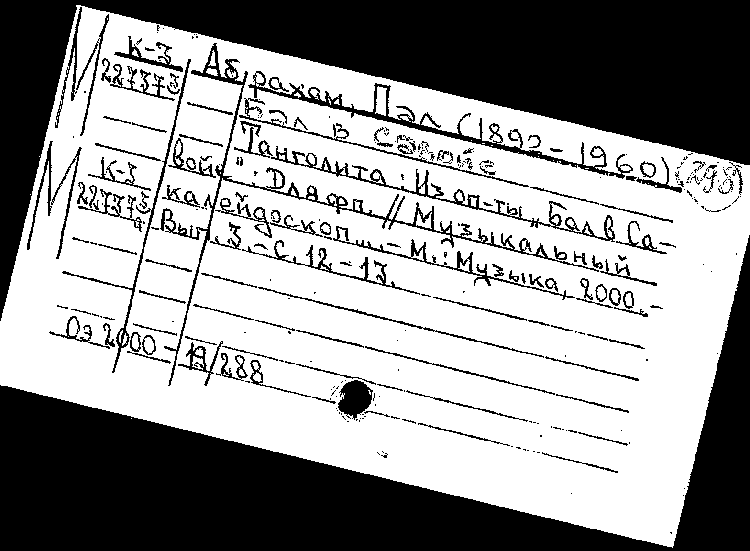 М К-3 Абрахам, Пал (1892-1960) (298)
227373 Бал в Савойе
Танголита : Из оп-ты „Бал в Са-
М К-3 войе" : Для фп. // Музыкальный
227373 калейдоскоп... - М. : Музыка, 2000. -
а Вып. 3. - С. 12-13.
Оэ 2000 - 19/288